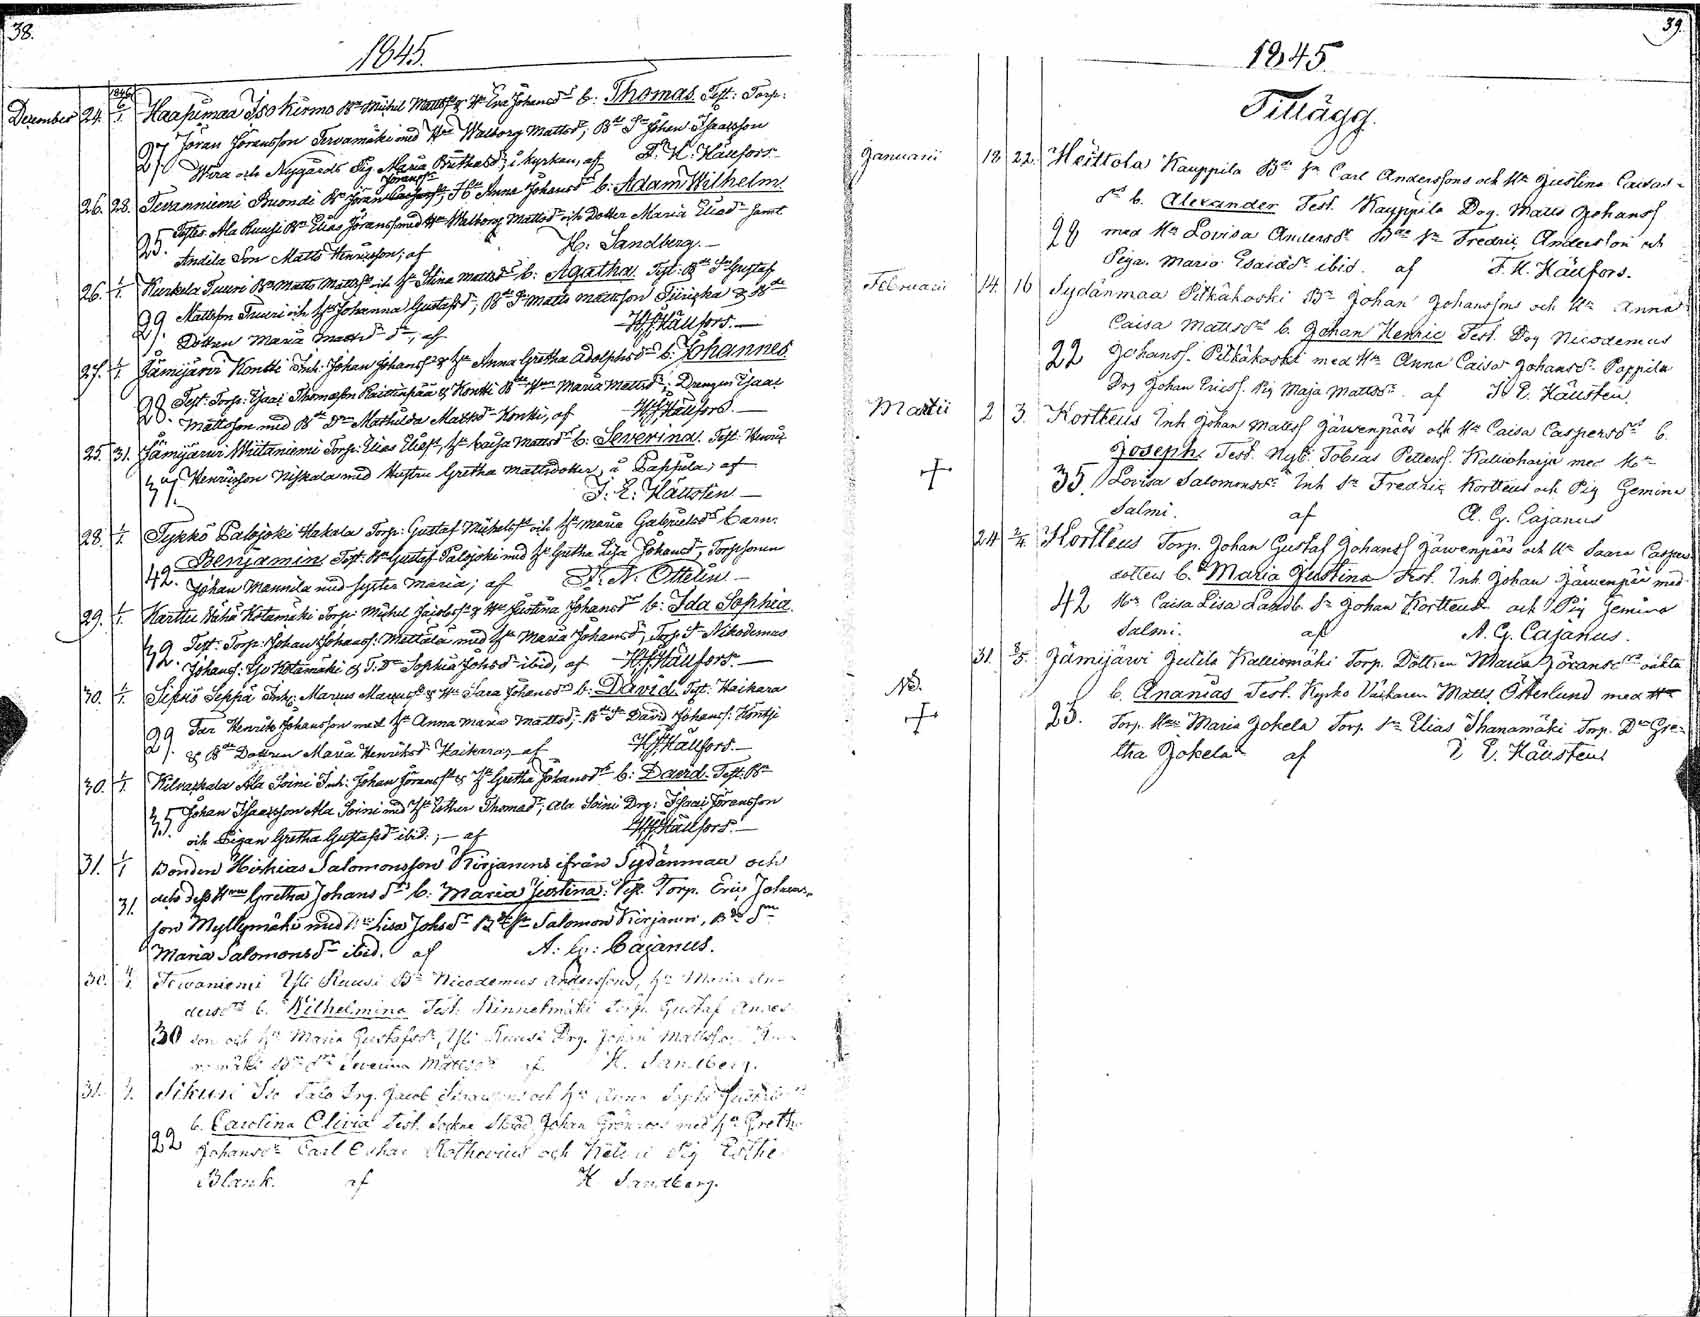 38.
1845.
December 24. 1846 6/1. Haapimaa Iso Kirmo Bn Michel Mattss & Hu Eva Johansdr b: Thomas. Test: Torp:
Jöran Jöransson Tervamäki med Hu Walborg Mattsdr, Bde Sn Johan Isaacsson
27. Wira och Nygårds Pig. Maria Brithasdr, i kyrkan, af F. H: Källfors.
Jöranss
26. 28. Tevanniemi Ruondi Bn Jöran, Hu Anna Johansdr b: Adam Wilhelm.
Testes Ala Ruusi Bn Elias Jöransson med Hu Walborg Mattsdr och Dotter Maria Eliædr samt
25. Andila Son Matts Henricsson, af H: Sandberg.
26. 1/1. Kurkela Tuuri Bn Matts Mattss och Hu Stina Mattsdr b: Agatha. Test: Bde Sn Gustaf
Mattsson Tuuri och Hu Johanna Gustafsdr, Bde Sn Matts Mattsson & Bde
29. Dottren Maria Mattsdr, af HfKällfors.
27. 1/1. Jämijärvi Kontti Inh: Johan Johanss & Hu Anna Gretha Adolphsdr b: Johannes
Test: Torp: Isaac Thomasson & Kontti Bde Hun Maria Mattsdr; Drengen Isaac
28. Mattsson med Bde Dr Mathilda Mattsdr Kontti, af HfKällfors.
25. 31. Jämijärvi Mutaniemi Torp: Elias Eliæss, Hu Caisa Mattsdr b: Severina. Test: Henric
Henricsson Niskala med Hustru Gretha Mattsdotter, å Pappila; af
31. I. E: Hällstén
28. 1/1. Tykkö Palojoki Hakala Torp: Gustaf Michelss och Hu Maria Gabrielsdr barn:
Benjamin. Test: Bn Gustaf Palojoki med Hu Gretha Lisa Johansdr, Torpsonen
42. Johan Mannila med syster Maria; af F: N: Ottelin
29. 1/1. Karttu Wähä Kotamäki Torp: Michel Jacobss & Hu Justina Johansdr b: Ida Sophia.
Test: Torp: Johan Johanss: Mettälä med Hu Maria Johansdr, Torp: Sn Nikodemus
32. Johanss: Iso Kotamäki & T: Dr Sophia Johsdr ibid, af HfKällfors.
30. 1/1. Sipsiö Seppä Inh: Marcus & Hu Sara Johansdr b: David. Test: Haikara
Far Henrik Johansson med Hu Anna Maria Mattsdr, Bde Sn David Johanss: Kontti
29. & Bde Dottren Maria Henriksdr Haikara, af HfKällfors.
30. 1/1. Kilvaskala Ala Soini Inh: Johan Jöranss & Hu Gretha Johansdr b: David. Test: Bn
Johan Isaacsson Ala Soini med Hu Esther Thomædr, Ala Soini Dreng: Isaac Jöransson
35. och Pigan Gretha Gustafsdr ibid:, af HfKällfors.
31. 1/1 Bonden Hiskias Salomonsson Kirjanens ifrån Sydänmaa och
och dess Hustru Gretha Johansdr b: Maria Justina: Test. Torp. Eric Johans-
31. son Myllymäki med Hu Lisa Johsdr Bde Sn Salomon Kirjanen, Bde Dn
Maria Salomonsdr ibid. af A: G: Cajanus.
30. 4/1. Tevaniemi Yli Ruusi Bn Nicodemus Anderssons, Hu Maria An-
dersdr b. Wilhelmina Test. Kinnelmäki Torp. Gustaf Anders-
30 son och Hu Maria Gustafsdr, Yli Ruusi Dreng. Johan Mattsson
Severina Mattsdr af H. Sandberg.
31. 4/1. Sikuri Iso Talo Dreng. Jacob och Hu Anna Sophi
b. Carolina Olivia Test. Sockne Skräd. Johan Grönroos med Hu Gretha
22 Johansdr Carl Oskar Rothovius och Pig Esther
Blank. af H Sandberg.
39.
1845.
Tillägg.
Januarii 18 22. Heittola Kauppila Bn Sn Carl Anderssons och Hu Justina Caisas-
dr b. Alexander Test. Kauppila Dreng. Matts Johanss
28 med Hu Lovisa Andersdr Bde Sn Fredric Andersson och
Piga. Maria Esaiædr ibid. af F. H. Källfors.
Februarii 14. 16 Sydänmaa Pitkäkoski Bn Johan Johanssons och Hu Anna
Caisa Mattsdr b. Johan Henric Test. Dreng Nicodemus
22 Johanss. Pitkäkoski med Hu Anna Caisa Johansdr Pappila
Dreng Johan Ericss. Pig Maja Mattsdr af I. E. Hällstén.
Martii 2 3. Kortteus Inh Johan Mattss Järvenpääs och Hu Caisa Caspersdr b.
Joseph. Test. Nyb: Tobias Petterss. Kallioharju med Hu
35. Lovisa Salomonsdr Inh Sn Fredric Kortteus och Pig Gemina
Salmi. af A. G. Cajanus
24 2/4. Kortteus Torp. Johan Gustaf Johanss Järvenpääs och Hu Saara Casper
dotters b. Maria Justina Test. Inh. Johan Järvenpää med
42 Hu Caisa Lisa Landb. Sn Johan Kortteus och Pig Gemina
Salmi. af A. G. Cajanus.
31. 3/5. Jämijärvi Julila Kalliomäki Torp. Dottren Maria Jöransdrs oäkta
NB. b. Ananias Test. Kyrko Väktaren Matts Österlund med Hu
25. Torp. Hu Maria Jokela Torp. Sn Elias Torp. Dn Gre-
tha Jokela af I E. Hällstén